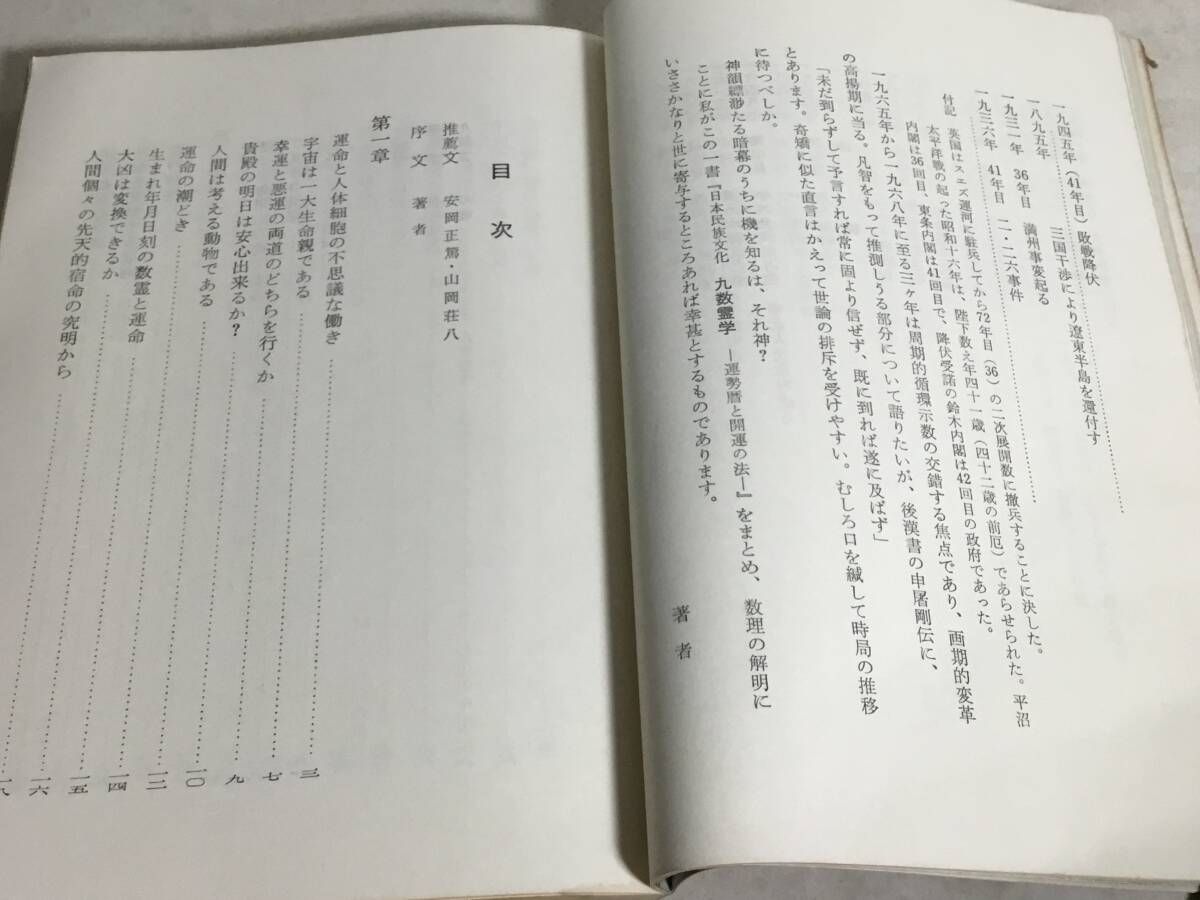 一九四五年(41年目)敗戦降伏
一八九五年……三国干渉により遼東半島を還付す
一九三一年 36年目 満州事変起る
一九三六年 41年目 二・二六事件
付記 英国はスエズ運河に駐兵してから72年目(36)の二次展開数に撤兵することに決した。
太平洋戦の起った昭和十六年は、陛下数え年四十一歳(四十二歳の前厄)であらせられた。平沼
内閣は36回目、東条内閣は41回目で、降伏受諾の鈴木内閣は42回目の政府であった。
一九六五年から一九六八年に至る三ヶ年は周期的循環示数の交錯する焦点であり、画期的変革
の高揚期に当る。凡智をもって推測しうる部分について語りたいが、後漢書の申屠剛伝に、
「未だ到らずして予言すれば常に固より信ぜず、既に到れば遂に及ばず」
とあります。奇矯に似た直言はかえって世論の排斥を受けやすい。むしろ口を緘して時局の推移
に待つべしか。
神韻縹渺たる暗幕のうちに機を知るは、それ神?
ことに私がこの一書『日本民族文化 九数霊学 ―運勢暦と開運の法―』をまとめ、数理の解明に
いささかなりと世に寄与するところあれば幸甚とするものであります。
著者
目次
推薦文 安岡正篤・山岡荘八
序文 著者
第一章
運命と人体細胞の不思議な働き
宇宙は一大生命親である……三
幸運と悪運の両道のどちらを行くか……七
貴殿の明日は安心出来るか?……九
人間は考える動物である……一〇
運命の潮どき……一二
生まれ年月日刻の数霊と運命……一四
大凶は変換できるか……一五
人間個々の先天的宿命の究明から……一六
一八